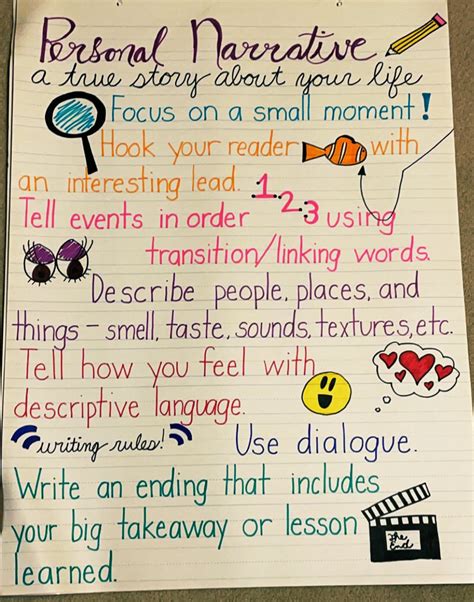 Personal Narrative
a true story about your life
Focus on a small moment!
Hook your reader with
an interesting lead.
1.2.3
Tell events in order using
transition/linking words.
Describe people, places, and
things - smell, taste, sounds, textures, etc.
Tell how you feel with
descriptive language.
writing rules! Use dialogue.
Write an ending that includes
your big takeaway or lesson
learned.
The
End